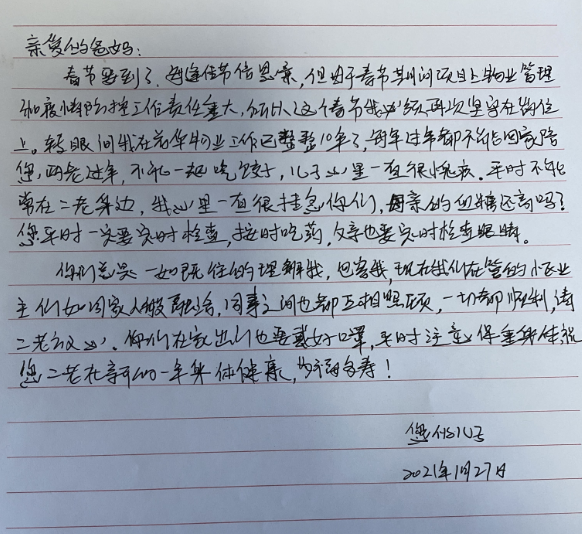 亲爱的爸妈:
春节要到了,每逢佳节倍思亲,但由于春节期间项目上物业管理
和疫情防控工作责任重大,所以这个春节我必须再次坚守在岗位
上。转眼间我在花华物业工作已整整10年了,每年过年都不能回家陪
您两老过年,不能一起吃饺子,儿子心里一直很愧疚。平时不能
常在二老身边,我心里一直很挂念你们,母亲的血糖还高吗?
您平时一定要定时检查,按时吃药,父亲也要定时检查眼睛。
你们总是一如既往的理解我,包容我,现在我们在管的小区业
主们如同家人般融洽,同事之间也都互相照顾,一切都顺利,请
二老放心,你们在家出门也要戴好口罩,平时注意保重身体祝
您二老在新的一年身体健康,多福多寿!
您的儿子
2021年1月27日